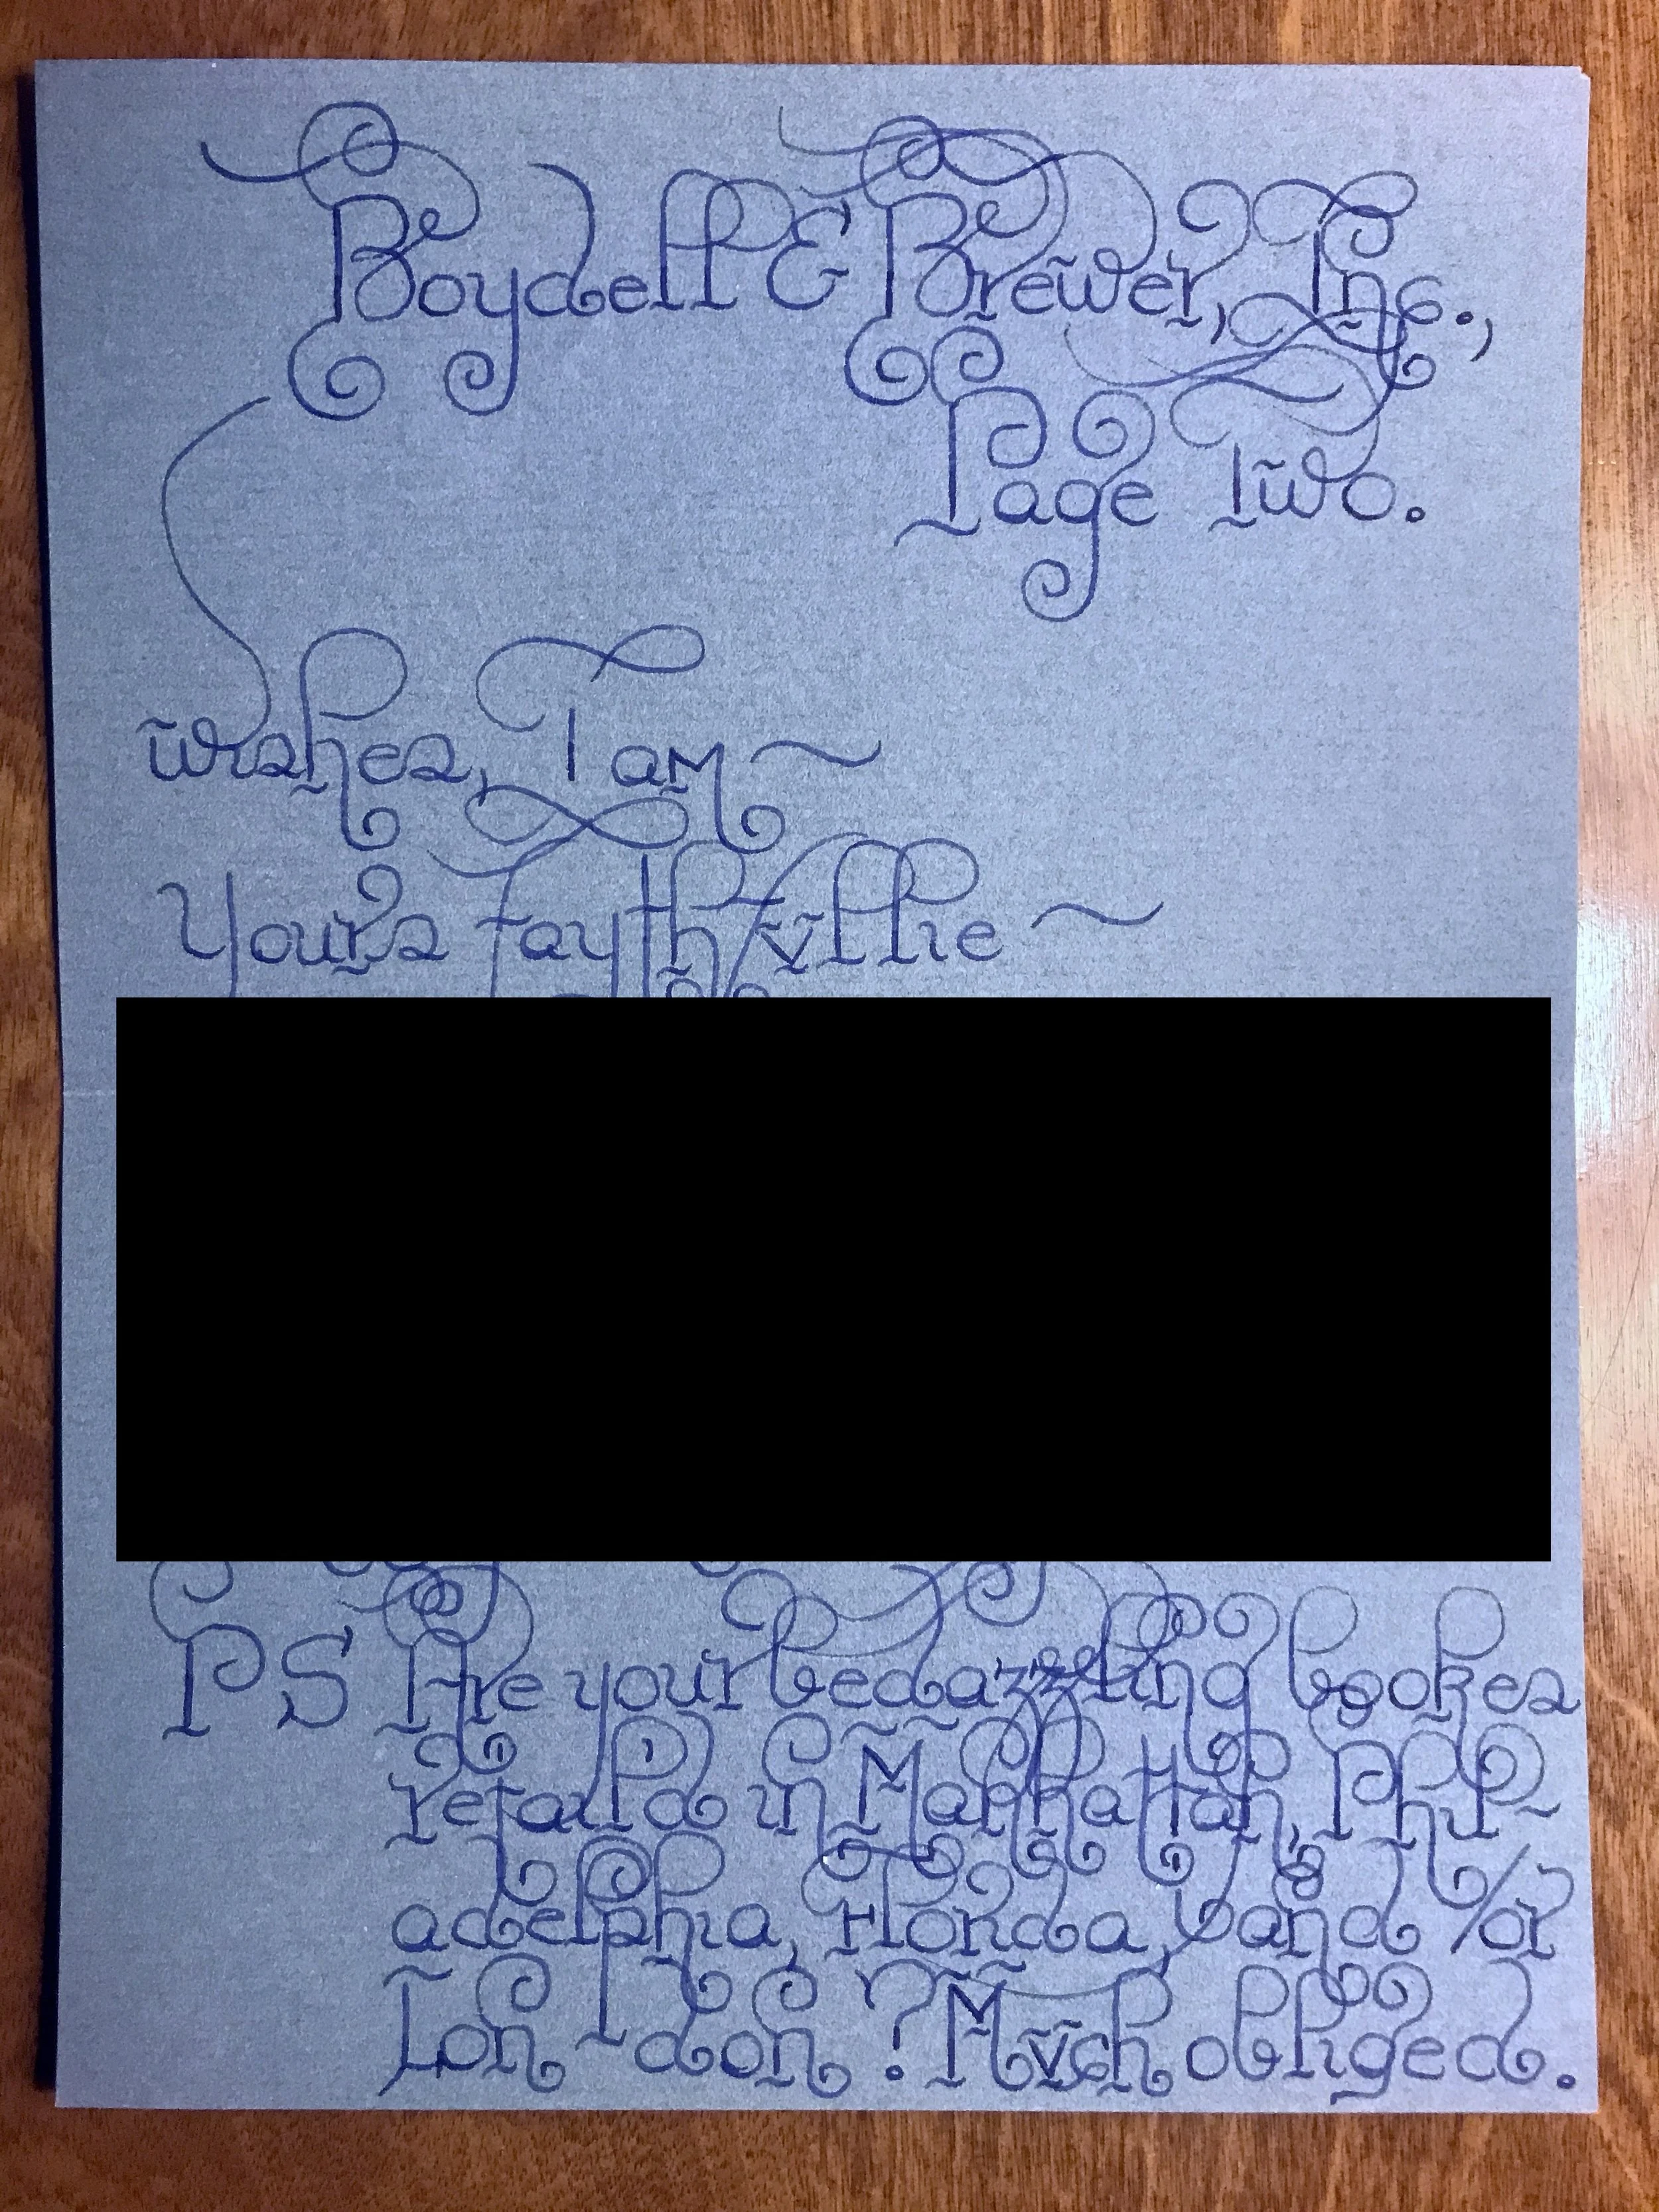 Boydell & Brewer, Inc.,
Page Two.
wishes, I am ~
Yours faythfvllie ~
PS Are your bedazzling bookes
retaild in Manhattan, Phil~
adelphia, Florida, and/or
Lon~don? Mvch obliged.